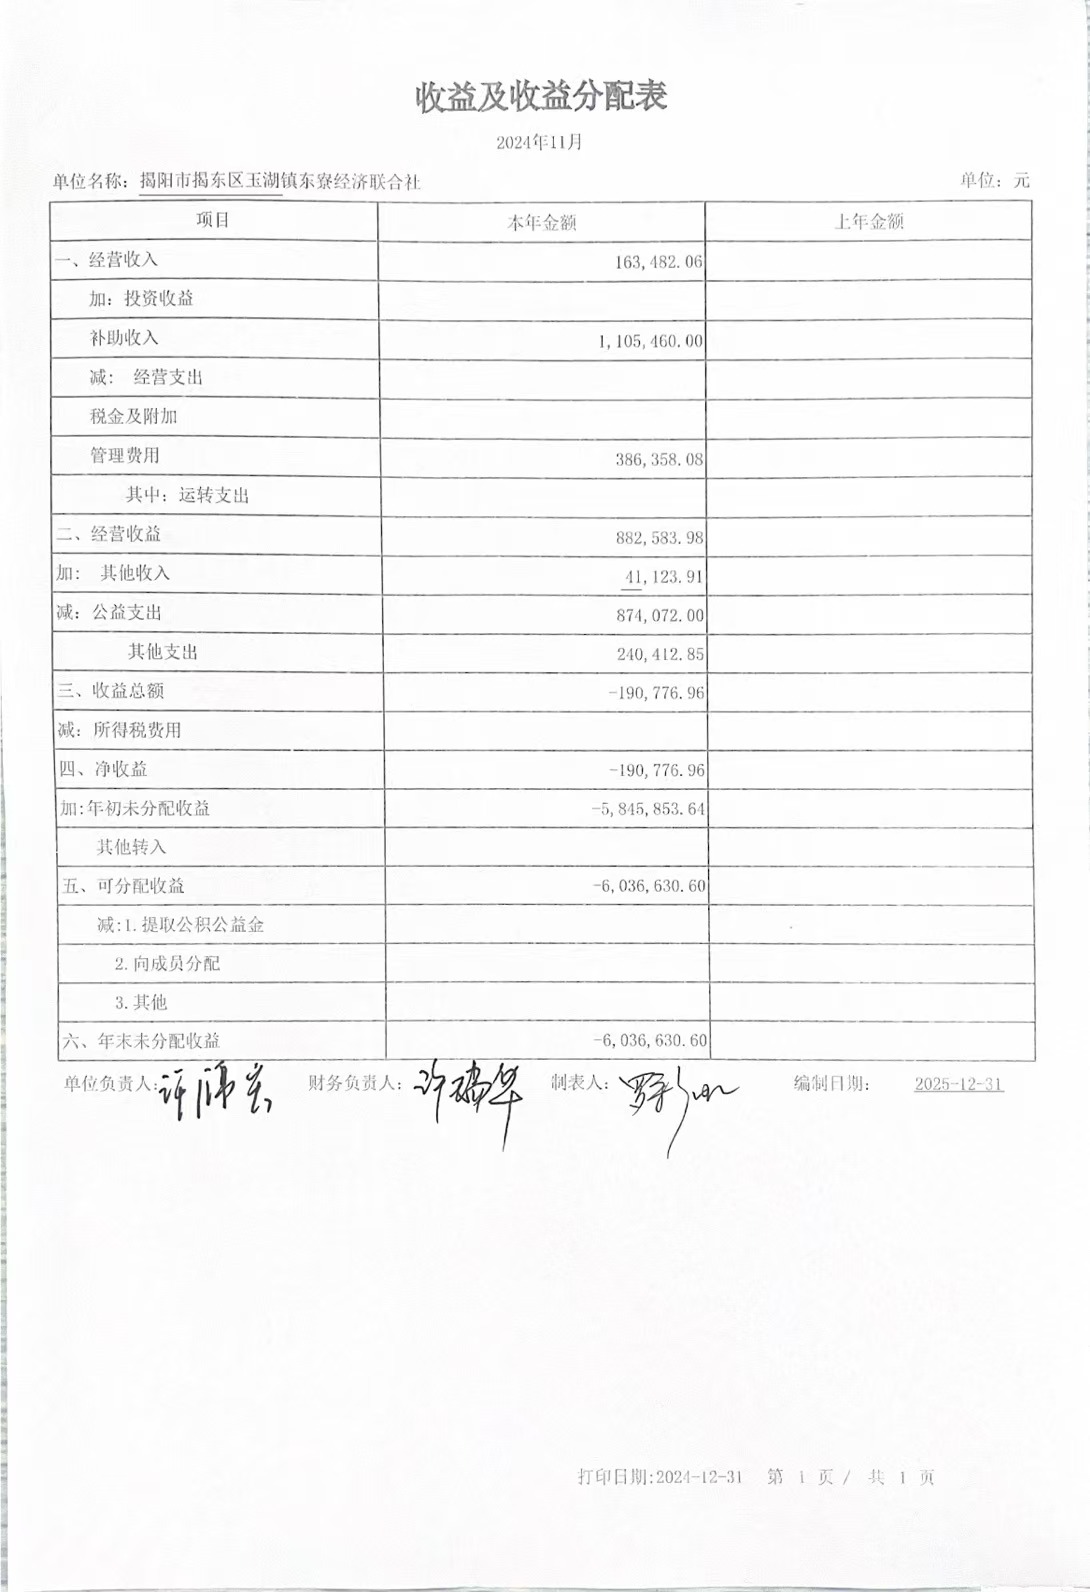 收益及收益分配表
2024年11月
单位名称：揭阳市揭东区玉湖镇东寮经济联合社 单位：元
项目 本年金额 上年金额
一、经营收入 163,482.06
加：投资收益
补助收入 1,105,460.00
减： 经营支出
税金及附加
管理费用 386,358.08
其中：运转支出
二、经营收益 882,583.98
加： 其他收入 41,123.91
减：公益支出 874,072.00
其他支出 240,412.85
三、收益总额 -190,776.96
减：所得税费用
四、净收益 -190,776.96
加:年初未分配收益 -5,845,853.64
其他转入
五、可分配收益 -6,036,630.60
减:1.提取公积公益金
2.向成员分配
3.其他
六、年末未分配收益 -6,036,630.60
单位负责人: 财务负责人： 制表人： 编制日期： 2025-12-31
打印日期:2024-12-31 第 1 页 / 共 1 页